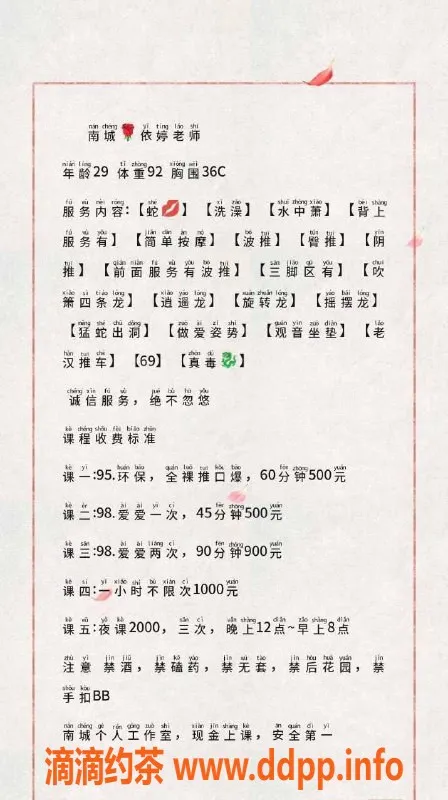 南城🌹依婷老师
年龄29 体重92 胸围36C
服务内容:【蛇💋】【洗澡】【水中萧】【背上
服务有】【简单按摩】【波推】【臀推】【阴
推】【前面服务有波推】【三脚区有】【吹
箫四条龙】【逍遥龙】【旋转龙】【摇摆龙】
【猛蛇出洞】【做爱姿势】【观音坐垫】【老
汉推车】【69】【真毒🐉】
诚信服务，绝不忽悠
课程收费标准
课一:95.环保，全裸推口爆，60分钟500元
课二:98.爱爱一次，45分钟500元
课三:98.爱爱两次，90分钟900元
课四:一小时不限次1000元
课五:夜课2000，三次，晚上12点~早上8点
注意 禁酒，禁磕药，禁无套，禁后花园，禁
手扣BB
南城个人工作室，现金上课，安全第一
滴滴约茶 www.ddpp.info